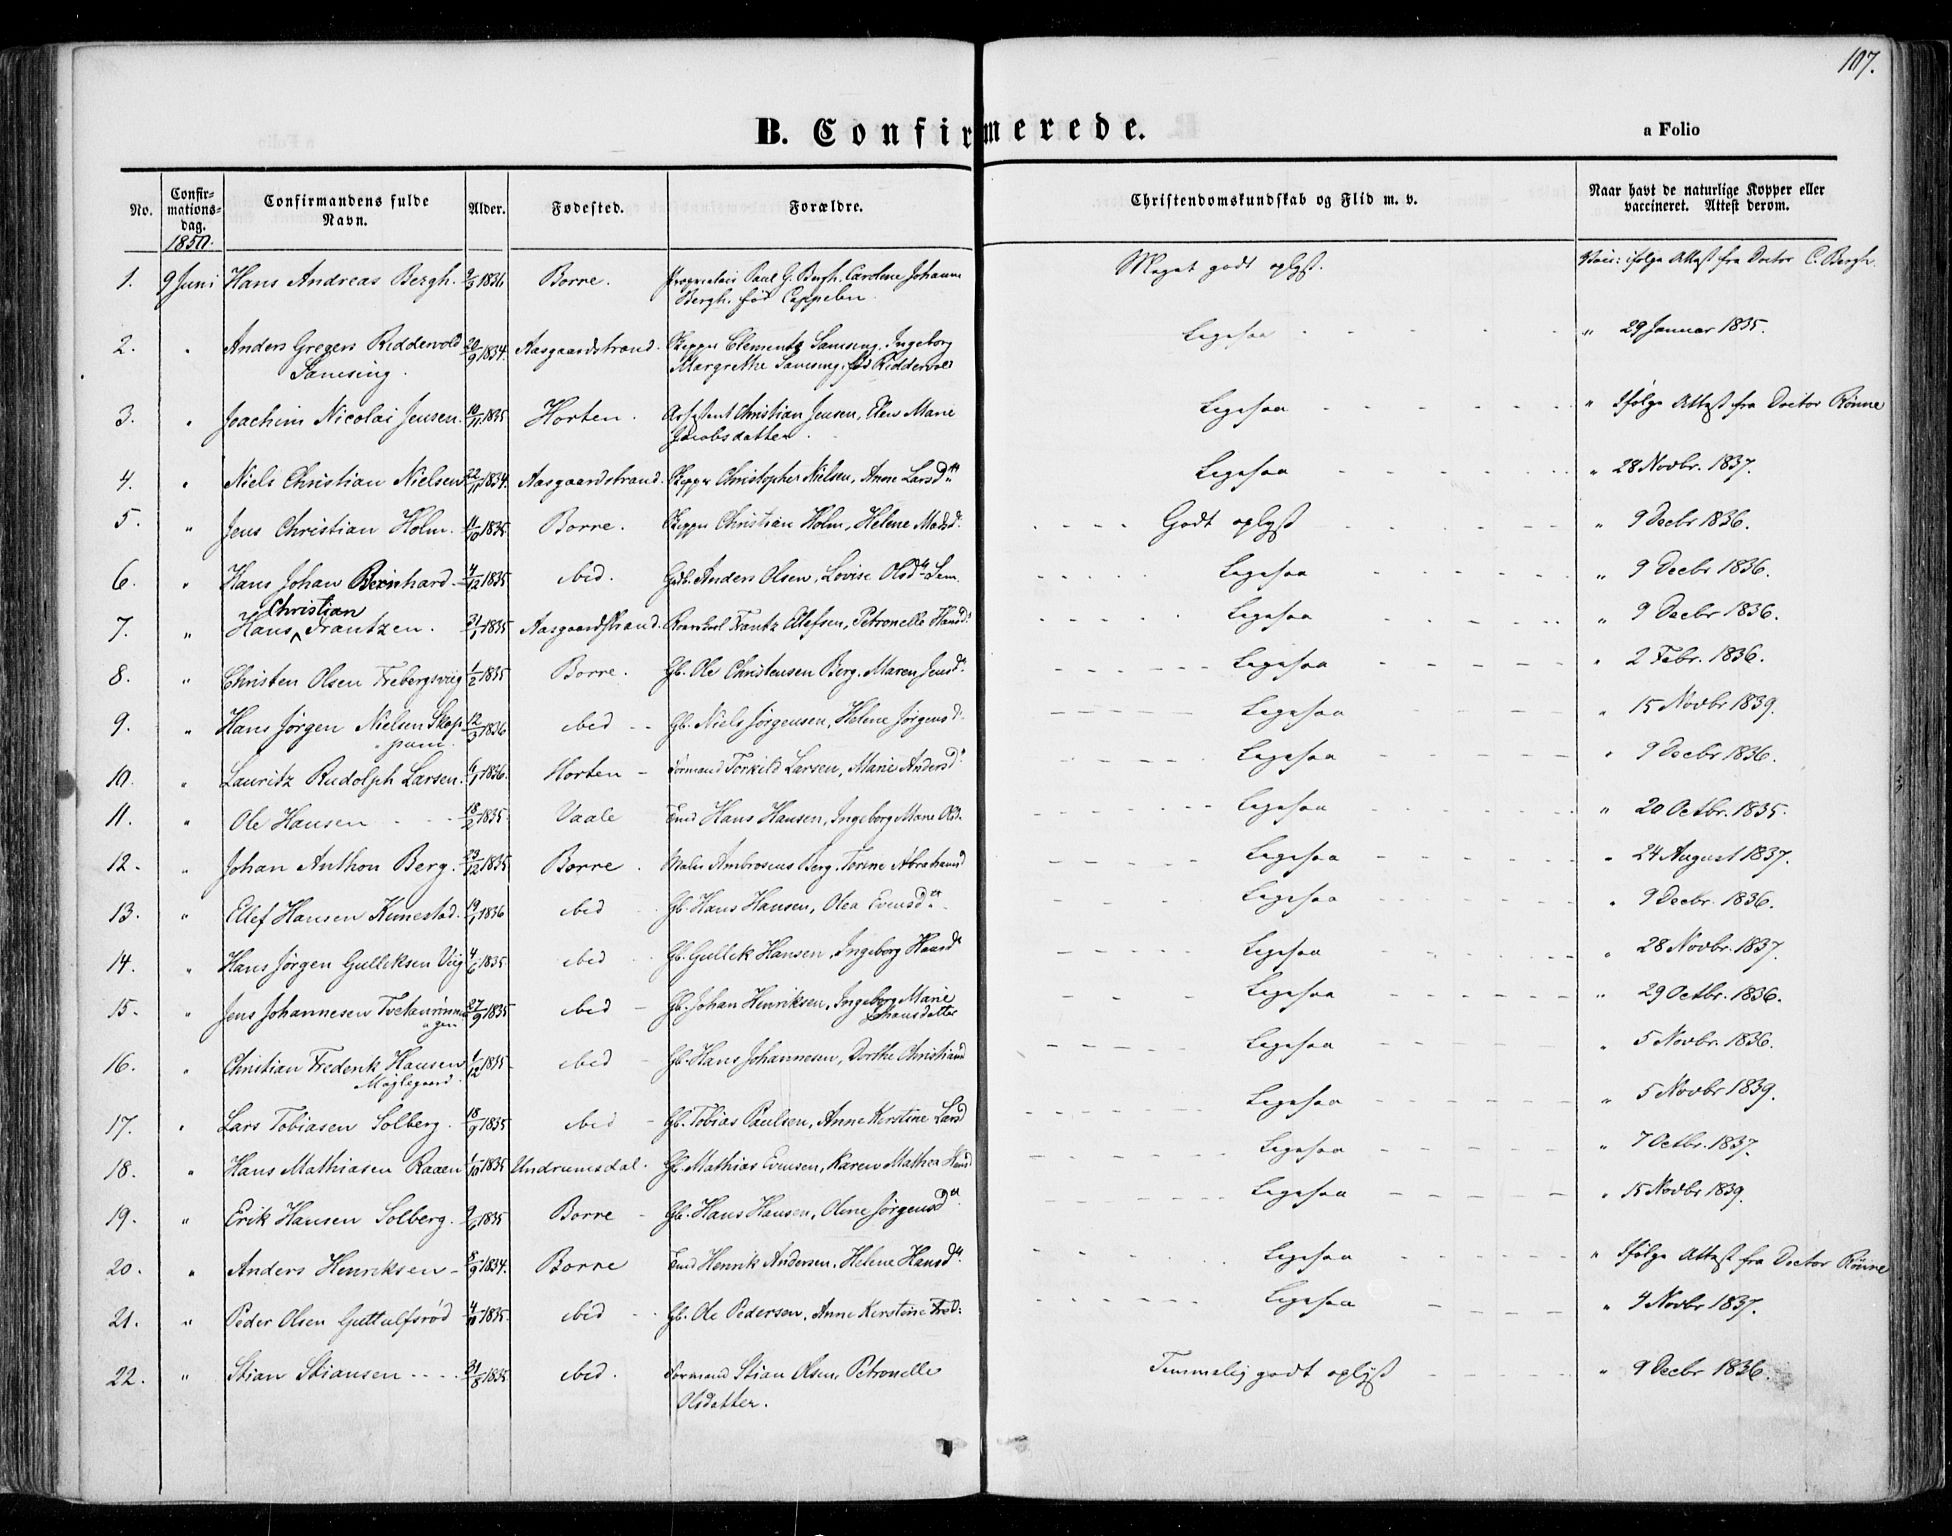 107.
B. Confirmerede.
a Folio
No. | Confirmationsdag. | Confirmandens fulde Navn. | Alder. | Fødested. | Forældre. | Christendomskundskab og Flid m. v. | Naar havt de naturlige Kopper eller vaccineret. Attest derom.
1850.
1. 9 Juni Hans Andreas Bergh. 9/3 1836 Borre. Proprietair Paul G. Bergh, Caroline Johanne Meget godt oplyst. Vacc: ifølge Attest fra Doctor C. Bergh.
Bergh, født Cappelen
2. " Anders Gregers Riddervold 20/9 1834. Aasgaardstrand. Skipper Clementz Samsing, Ingeborg Ligesaa " 29 Januar 1835.
Samsing. Margrethe Samsing, fød Riddervold
3. " Joachim Nicolai Jensen. 10/11 1835 Horten. Assistent Christian Jensen, Elen Marie Ligesaa " Ifølge Attest fra Doctor Rønne
Jacobsdatter.
4. " Niels Christian Nielsen 22/11 1834. Aasgaardstrand. Skipper Christopher Nielsen, Anne Larsdtr Ligesaa " 28 Novbr. 1837.
5. " Jens Christian Holm. 11/10 1835. Borre. Skipper Christian Holm, Helene Madsd. Godt oplyst " 9 Decbr 1836.
6. " Hans Johan Bernhard 4/12 1835 ibid. Gdb. Anders Olsen, Lovise Olsdr Sem Ligesaa " 9 Decbr 1836.
Christian
7. " Hans Frantzen. 21/1 1835 Aasgaardstrand. Frantz Olefsen, Petronelle Hansd. Ligesaa " 9 Decbr 1836.
8. " Christen Olsen Frebergsviig 1/2 1835 Borre. Gb. Ole Christensen Berg. Maren Jensd. Ligesaa " 2 Febr. 1836.
9. " Hans Jørgen Nielsen Skop- 12/3 1836 ibid Gb. Niels Jørgensen, Helene Jørgensd. Ligesaa " 15 Novbr 1839.
pum.
10. " Lauritz Rudolph Larsen. 6/1 1836. Horten Tørmand Torkild Larsen, Marie Andersd. Ligesaa " 9 Decbr 1836.
11. " Ole Hansen 18/2 1835. Vaale Hans Hansen, Ingeborg Marie Olsd. Ligesaa " 20 Octbr. 1835.
12. " Johan Anthon Berg. 23/12 1835 Borre Maler Ambrosius Berg, Torine Abrahamsd Ligesaa " 24 August 1837.
13. " Ellef Hansen Kimestad. 19/1 1836 ibid Gb. Hans Hansen, Olea Evensdr. Ligesaa " 9 Decbr. 1836.
14. " Hans Jørgen Gulliksen Viig 4/6 1835 ibid Gb. Gullik Hansen, Ingeborg Hansdr Ligesaa " 28 Novbr. 1837.
15. " Jens Johannesen Tveitanrinnin- 27/9 1835 ibid Gb. Johan Henriksen, Ingeborg Marie Ligesaa " 29 Octbr. 1836.
gen Hansdatter
16. " Christian Frederik Hansen 1/12 1835 ibid Gb. Hans Johannesen, Dorthe Christiansd Ligesaa " 5 Novbr. 1836.
Møglegaard.
17. " Lars Tobiasen Solberg. 18/9 1835 ibid Gb. Tobias Paulsen, Anne Kerstine Larsd Ligesaa " 5 Novbr 1839.
18. " Hans Mathiasen Raaen 1/10 1835 Undrumsdal. Gb. Mathias Evensen, Karen Mathea Hansd Ligesaa " 7 Octbr. 1837.
19. " Erik Hansen Solberg. 9/6 1835 Borre Gb. Hans Hansen, Oline Jørgensdr. Ligesaa " 15 Novbr 1839.
20. " Anders Henriksen 8/9 1834. Borre Henrik Andersen, Helene Hansdr. Ligesaa " Ifølge Attest fra Doctor Rønne
21. " Peder Olsen Guttulfsrød 4/10 1835. ibid Gb. Ole Pedersen, Anne Kerstine Ligesaa " 4 Novbr 1837.
22. " Stian Stiansen 21/8 1835 ibid. Tørmand Stian Olsen, Petronelle Temmelig godt oplyst " 9 Decbr 1836.
Olsdatter.